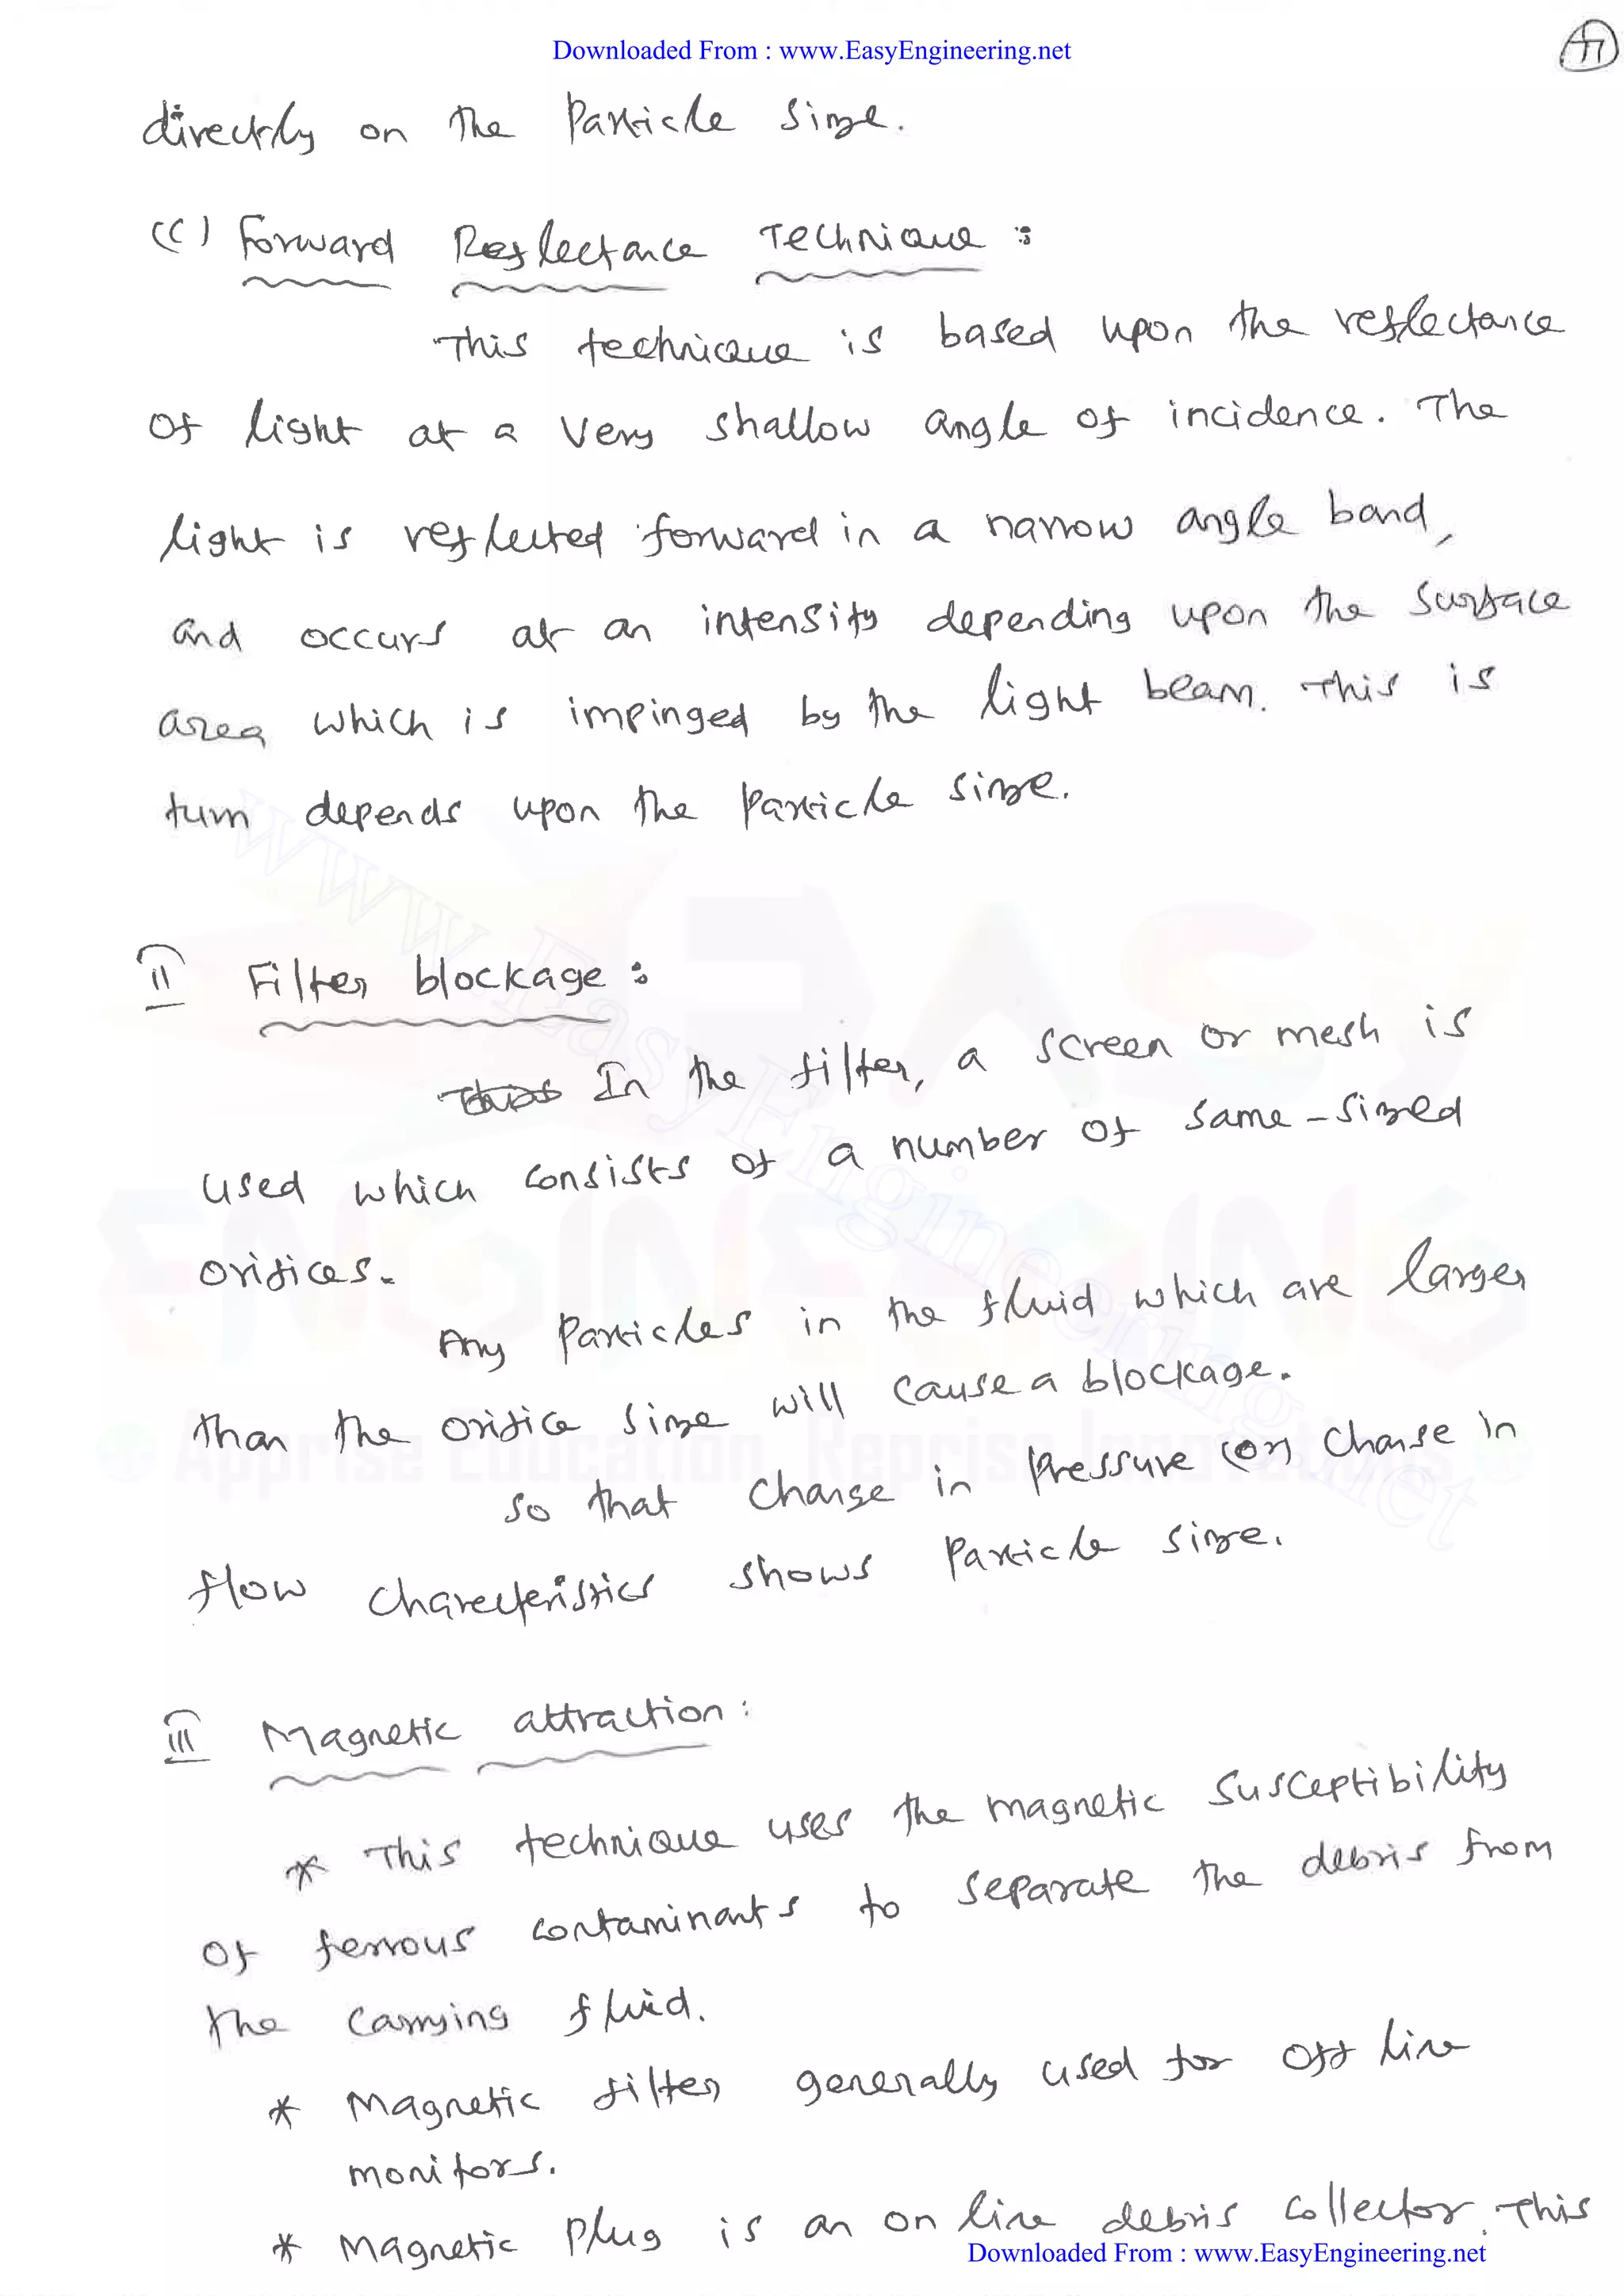 Downloaded From : www.EasyEngineering.net
directly on the Particle Size.
(C) Forward Reflectance Technique :
This technique is based upon the reflectance
of light at a very shallow angle of incidence. The
light is reflected forward in a narrow angle band,
and occurs at an intensity depending upon the surface
area which is impinged by the light beam. This is
turn depends upon the particle size.
II Filter blockage :
In the filter, a screen or mesh is
used which consists of a number of same-sized
orifices.
Any particles in the fluid which are larger
than the orifice size will cause a blockage.
so that change in pressure (or) change in
flow charecteristics shows particle size.
III Magnetic attraction :
* This technique uses the magnetic susceptibility
of ferrous contaminants to separate the debris from
the carrying fluid.
* Magnetic filter generally used for off line
monitors.
* Magnetic plug is an on line debris collector. This
Downloaded From : www.EasyEngineering.net
www.EasyEngineering.net
EASY
ENGINEERING
Apprise Education, Reprise Innovations